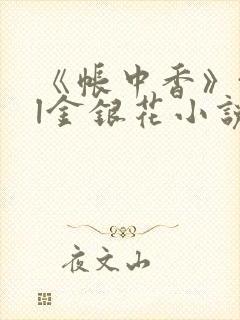 《帐中香》
|金银花小说
夜文山